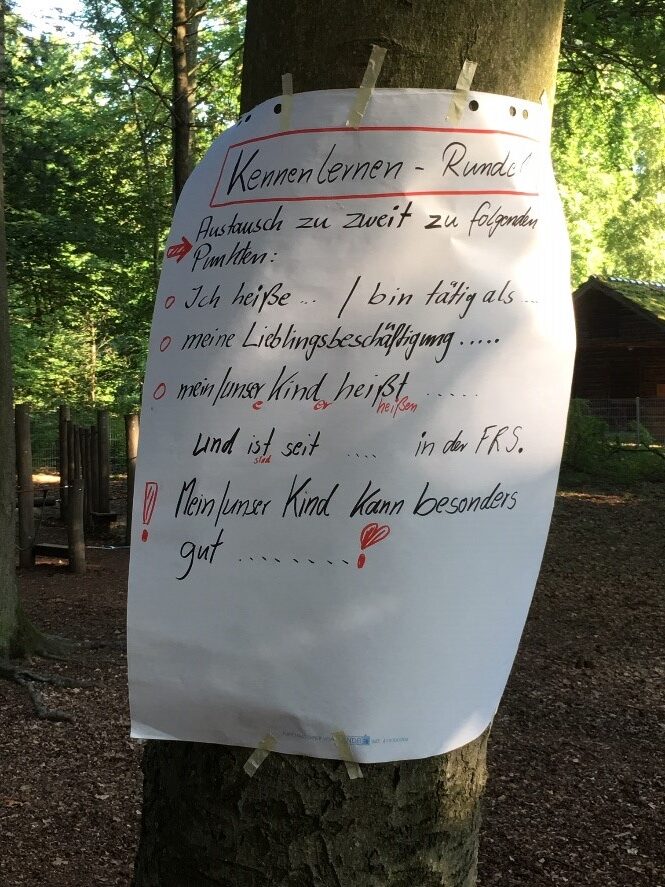 Kennenlernen - Runde
Austausch zu zweit zu folgenden
Punkten:
Ich heiße ... / bin tätig als ...
meine Lieblingsbeschäftigung .....
mein/unser Kind heißt .....
e er heißen
und ist seit .... in der FRS.
sind
! Mein/unser Kind kann besonders
gut ........!